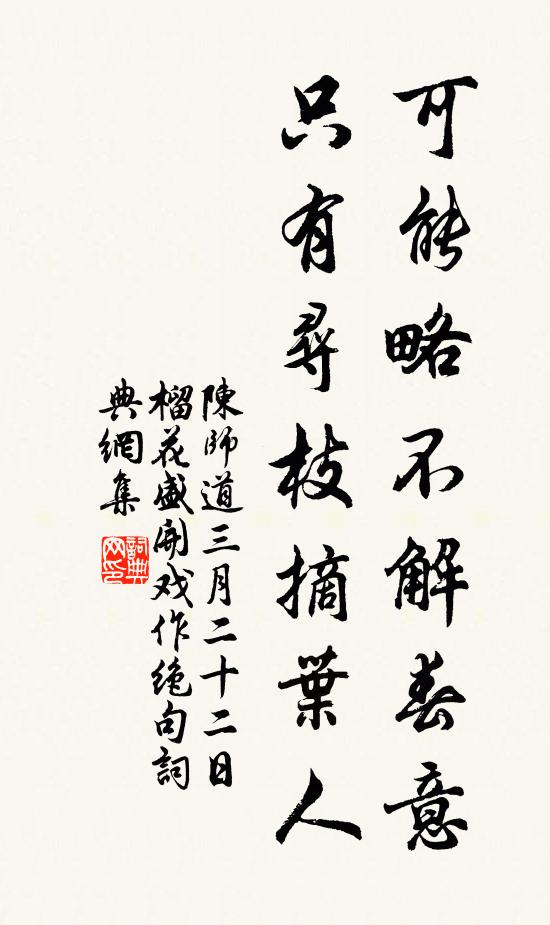 可能略不解春意
只有尋枝摘葉人
陳師道三月二十二日
榴花盛開戏作绝句詞
典網集
詞典网印